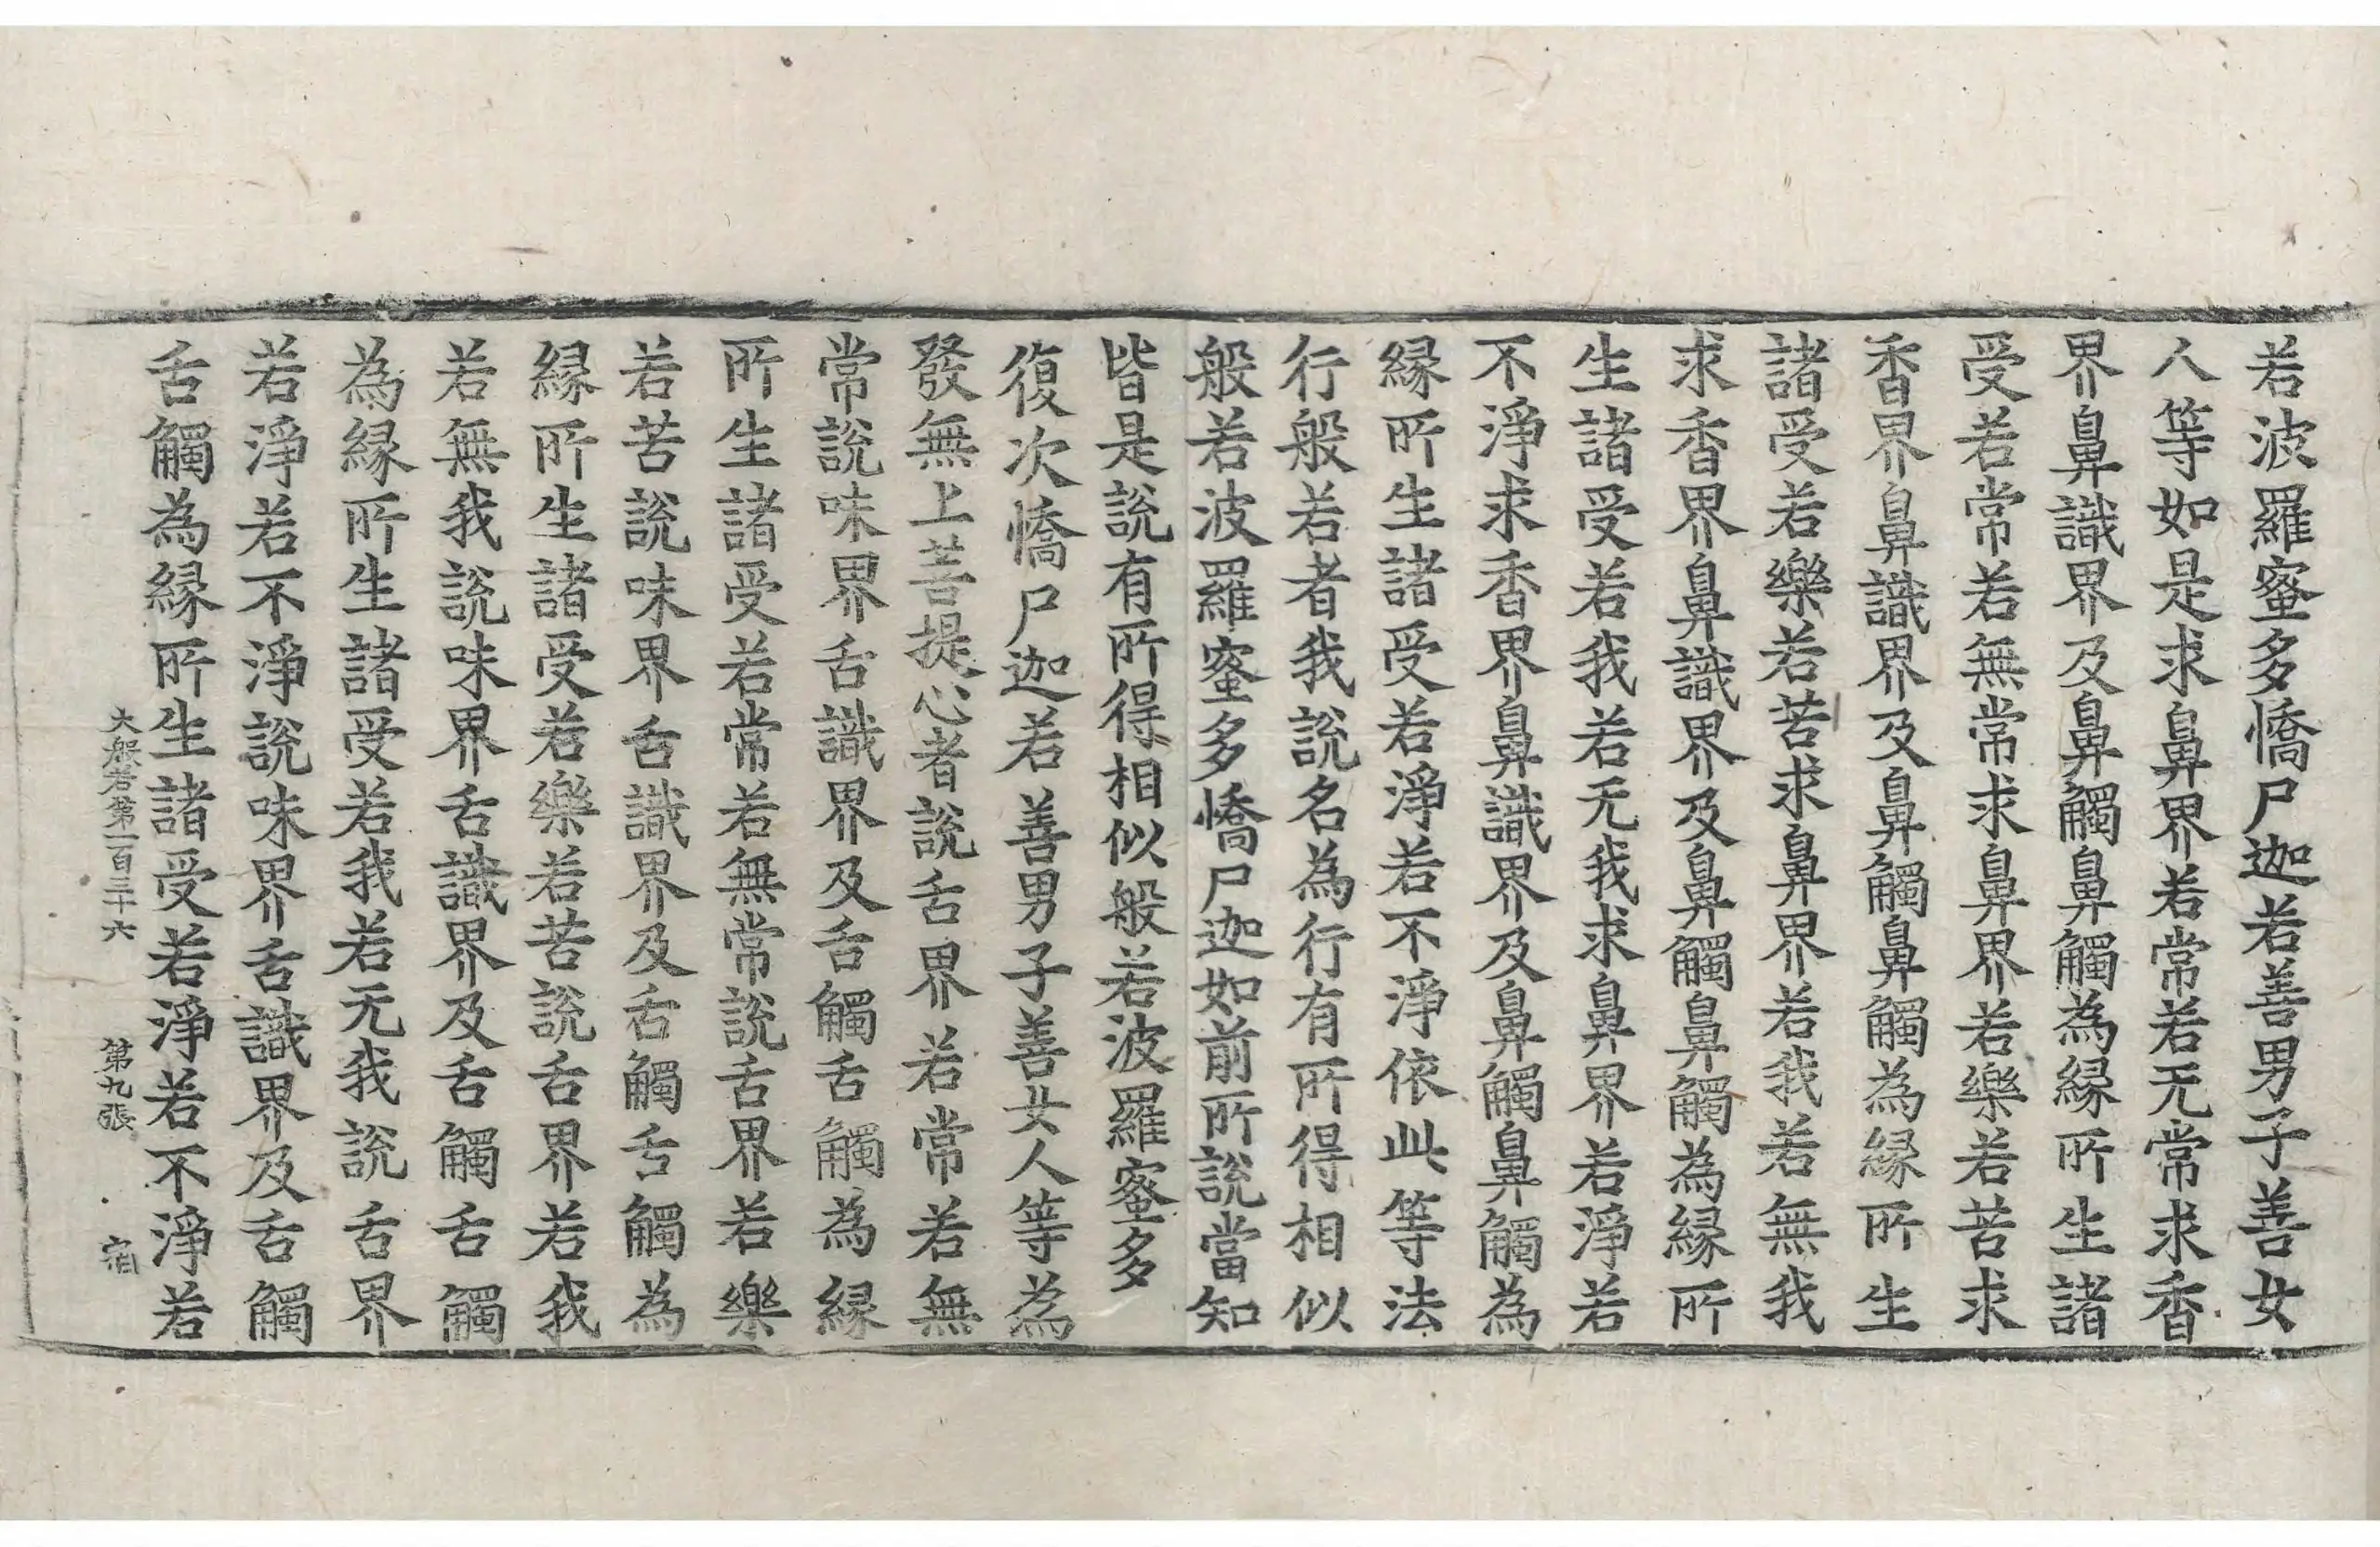 若波羅蜜多憍尸迦若善男子善女
人等如是求鼻界若常若无常求香
界鼻識界及鼻觸鼻觸為緣所生諸
受若常若無常求鼻界若樂若苦求
香界鼻識界及鼻觸鼻觸為緣所生
諸受若樂若苦求鼻界若我若無我
求香界鼻識界及鼻觸鼻觸為緣所
生諸受若我若无我求鼻界若淨若
不淨求香界鼻識界及鼻觸鼻觸為
緣所生諸受若淨若不淨依此等法
行般若者我說名為行有所得相似
般若波羅蜜多憍尸迦如前所說當知
皆是說有所得相似般若波羅蜜多
復次憍尸迦若善男子善女人等為
發無上菩提心者說舌界若常若無
常說味界舌識界及舌觸舌觸為緣
所生諸受若常若無常說舌界若樂
若苦說味界舌識界及舌觸舌觸為
緣所生諸受若樂若苦說舌界若我
若無我說味界舌識界及舌觸舌觸
為緣所生諸受若我若无我說舌界
若淨若不淨說味界舌識界及舌觸
舌觸為緣所生諸受若淨若不淨若
大般若第一百三十六 第九張 宿